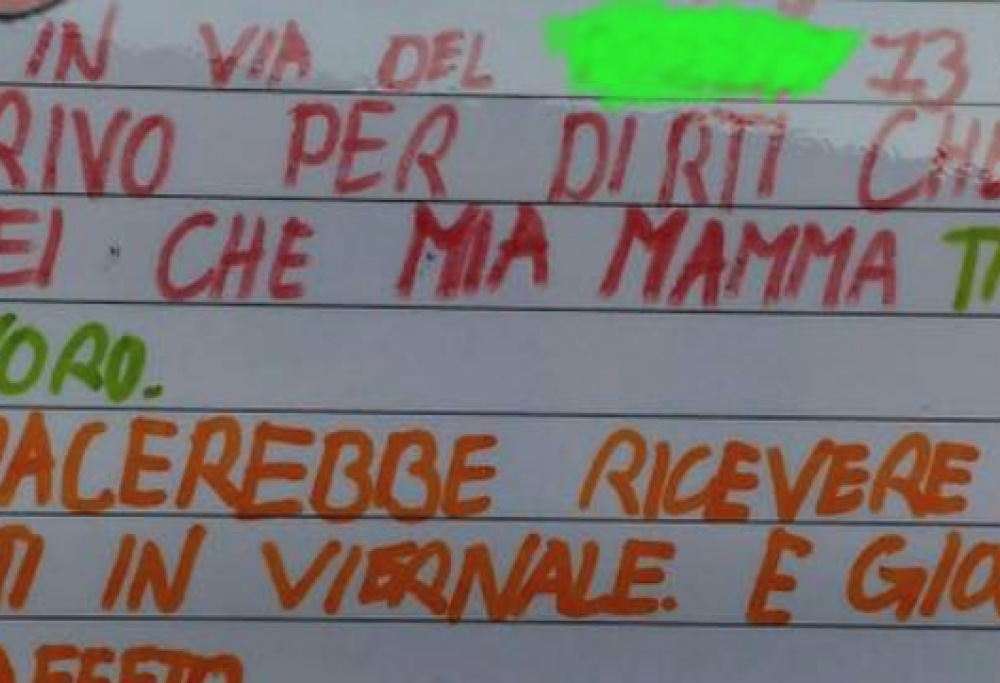 IN VIA DEL 13
RIVO PER DIRTI CHE
EI CHE MIA MAMMA
ORO.
ACEREBBE RICEVERE
IN VIERNALE. E GIO
AFFETTO